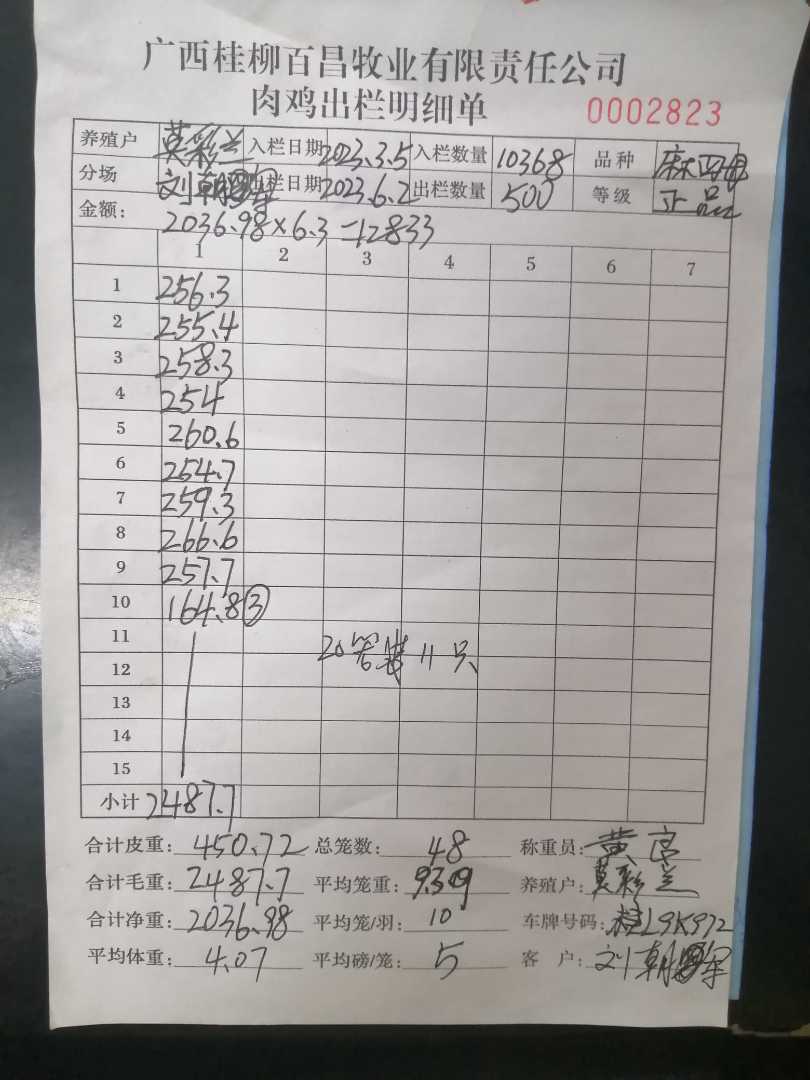 广西桂柳百昌牧业有限责任公司
肉鸡出栏明细单 0002823
养殖户 莫彩兰 入栏日期 2023.3.5 入栏数量 10368 品种 麻四母
分场 刘朝 出栏日期 2023.6.2 出栏数量 500 等级 正品
金额: 2036.98×6.3=12833
1 2 3 4 5 6 7
1 256.3
2 255.4
3 258.3
4 254
5 260.6
6 254.7
7 259.3
8 266.6
9 257.7
10 164.8 ③
11
20 笼 11只
12
13
14
15
小计 2487.7
合计皮重: 450.72 总笼数: 48 称重员: 黄
合计毛重: 2487.7 平均笼重: 9.39 养殖户: 莫彩兰
合计净重: 2036.98 平均笼/羽: 10 车牌号码: 桂L9K972
平均体重: 4.07 平均磅/笼: 5 客户: 刘朝